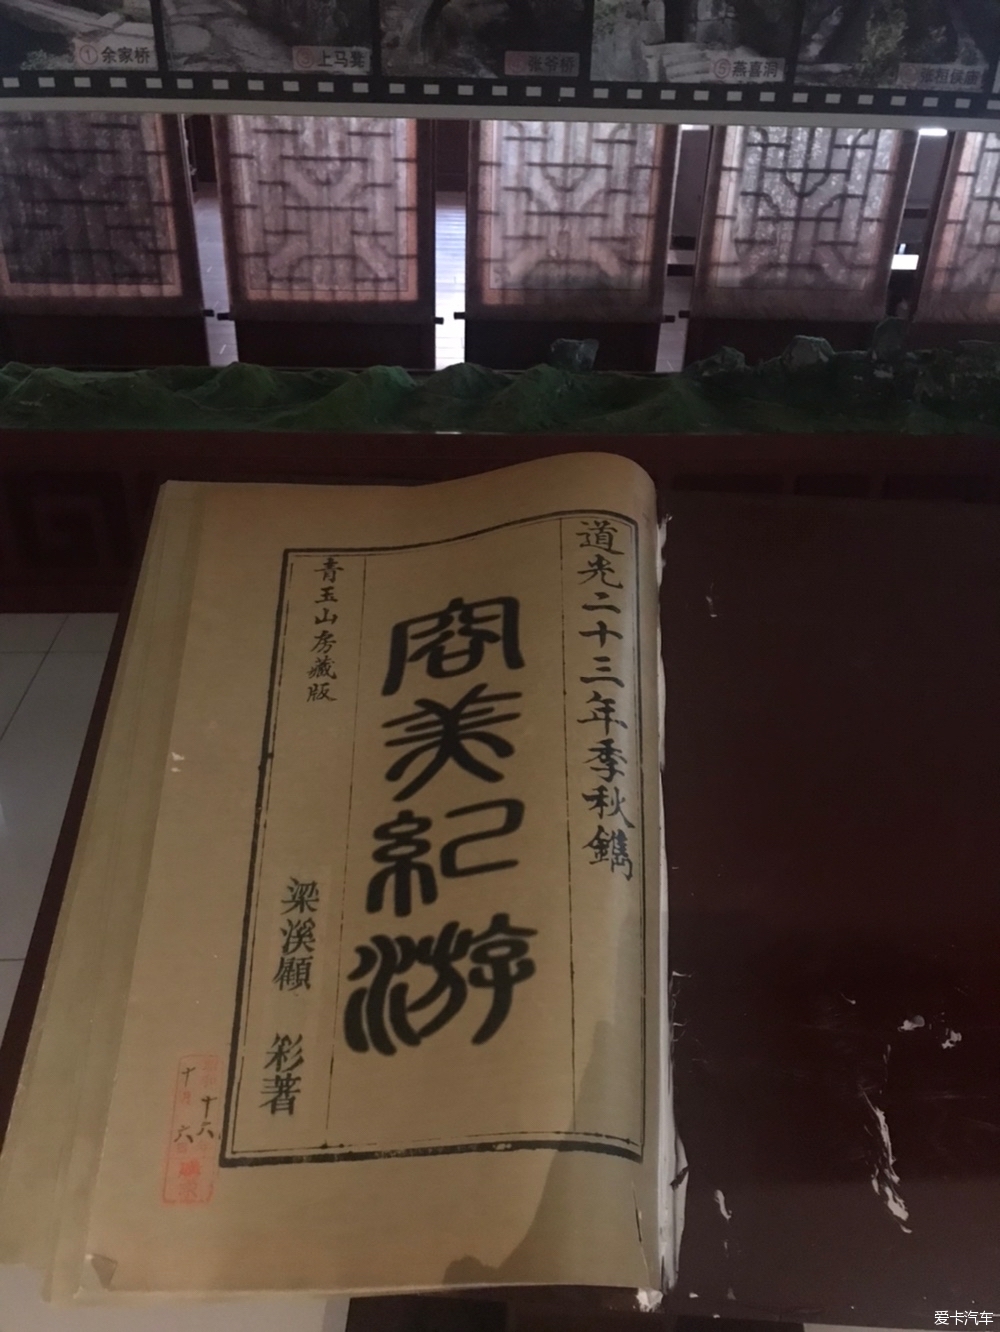 ①余家桥
③上马凳
张爷桥
⑤燕喜洞
张桓侯庙
道光二十三年季秋鐫
容美紀游
青玉山房藏版
梁溪顧 彩著
十六
十月六
爱卡汽车